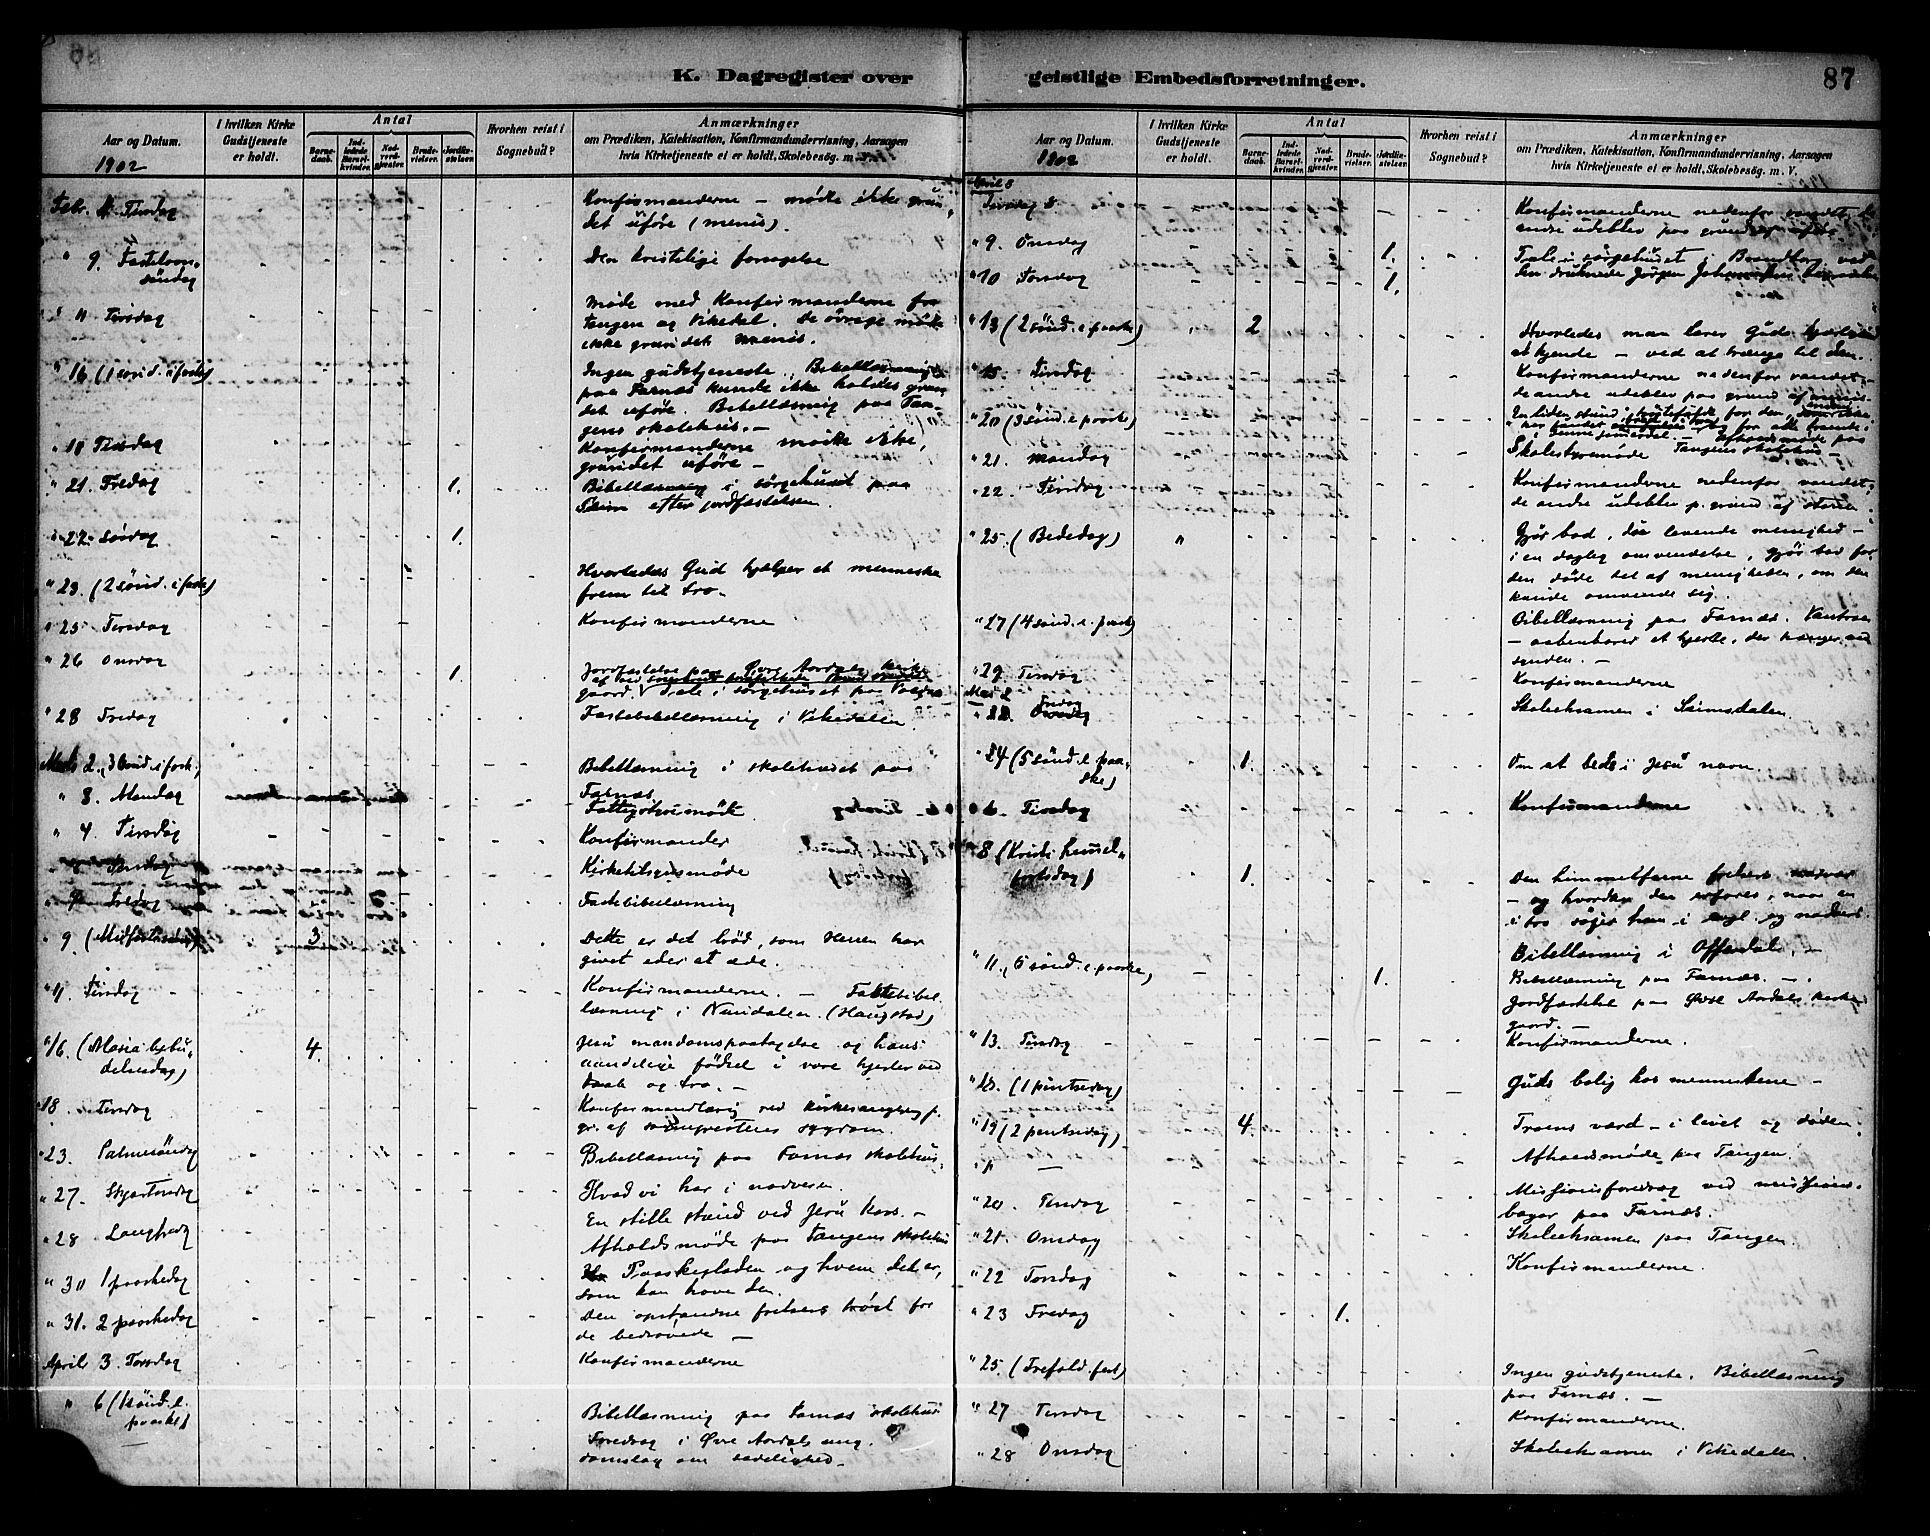 K. Dagregister over
Aar og Datum.
I hvilken Kirke
Gudstjeneste
er holdt.
Antal
Barne-
daab.
Ind-
ledede
Barsel-
kvinder.
Nad-
verd-
gjester.
Brude-
vielser.
Jordfæ-
stelser.
Hvorhen reist i
Sognebud?
Anmærkninger
om Prædiken, Katekisation, Konfirmandundervisning, Aarsagen
hvis Kirketjeneste ei er holdt, Skolebesøg. m. V.
1902
Febr. 4 Tirsdag
Konfirmanderne – mødte ikke grun-
det uføre (menis).
" 9. Fastelavns-
søndag
Den kristelige forsagelse
" 11 Tirsdag
Møde med Konfirmanderne fra
Tangen og Vikedal. De øvrige mødte
ikke grundet menis.
" 16 (1 sønd. i faste)
Ingen gudstjeneste. Bibellæsning
paa Farnæs kunde ikke holdes grun-
det uføre. Bibellæsning paa Tan-
gens skolehus.–
" 18 Tirsdag
Konfirmanderne mødte ikke,
grundet uføre –
" 21. Fredag 1.
Bibellæsning i sørgehuset paa
efter jordfæstelsen.
" 22. Lørdag 1.
" 23. (2 sønd. i faste)
Hvorledes Gud hjælper et menneske
frem til tro.
" 25 Tirsdag
Konfirmanderne
" 26 Onsdag 1.
Jordfæstelse paa Øvre Aardals kirke-
gaard. Tale i sørgehuset paa
" 28 Fredag
Fastebibellæsning i Vikedalen
Marts 2. (3 sønd. i faste)
Bibellæsning i skolehuset paa
Farnæs
" 3. Mandag
Fattigstyremøde
" 4. Tirsdag
Konfirmander
Kirketilsynsmøde
" Fredag
Fastebibellæsning
" 9. (Midfastesøndag) 3
Dette er det brød, som Herren har
givet eder at æde.
" 11. Tirsdag
Konfirmanderne. – Fastebibel-
læsning i (Haugstad)
" 16. (Maria bebu-
delsesdag) 4.
Jesu mandomspaatagelse og hans
aandelige fødsel i vore hjerter ved
daab og tro. –
" 18. Tirsdag
Konfirmandlæsning ved kirkesanger p.
gr. af sognepræstens sygdom.
" 23. Palmesøndag
Bibellæsning paa Farnæs skolehus.
" 27. Skjærtorsdag
Hvad vi har i nadveren.
" 28 Langfredag
En stille stund ved Jesu Kors. –
Afholdsmøde paa Tangens skolehus
" 30 1 paaskedag
Paaskeglæden og hvem det er,
som kan have den.
" 31. 2 paaskedag
Den opstandne frelsers trøst for
de bedrøvede –
April 3. Torsdag
Konfirmanderne
" 6 (1 sønd. e.
paaske)
Bibellæsning paa Farnæs skolehus
Foredrag i Øvre Aardals ung-
domslag om sædelighed.
geistlige Embedsforretninger.
87
Aar og Datum.
I hvilken Kirke
Gudstjeneste
er holdt.
Antal
Barne-
daab.
Ind-
ledede
Barsel-
kvinder.
Nad-
verd-
gjester.
Brude-
vielser.
Jordfæ-
stelser.
Hvorhen reist i
Sognebud?
Anmærkninger
om Prædiken, Katekisation, Konfirmandundervisning, Aarsagen
hvis Kirketjeneste ei er holdt, Skolebesøg. m. V.
1902
April 8
Tirsdag 8.
Konfirmanderne nedenfor vandet, de
andre udeblev paa grund af uføre.
" 9. Onsdag 1.
Tale i sørgehuset i ved
den druknede Jørgen
" 10 Torsdag 1.
" 13 (2 sønd. e. paaske) " 2
Hvorledes man lærer Guds kjærlighed
at kjende – ved at trænge til den.
" 15. Tirsdag
Konfirmanderne nedenfor vandet –
de andre udeblev paa grund af menis.
" 20 (3 sønd. e. paaske)
En liden stund for den,
for alle
Afholdsmøde paa
Tangens skolehus –
" 21. Mandag
Skolestyremøde
" 22. Tirsdag
Konfirmanderne nedenfor vandet;
de andre udeblev p. grund af storm
" 25. (Bededag) "
Gjør bod, du levende menighed –
i en daglig omvendelse, gjør bod for
den døde del af menigheden, om den
kunde omvende sig.
" 27 (4 sønd. e. paaske)
Bibellæsning paa Farnæs. Vantroen
– aabenbarer et hjerte, der hænger ved
synden. –
" 29 Tirsdag
Konfirmanderne
Mai 2
Fredag
Skoleeksamen i Seimsdalen
" 4 (5 sønd. e. paa-
ske) 1.
Om at bede i Jesu navn
" 6. Tirsdag
Konfirmanderne
" 8 (Kristi himmel-
fartsdag) 1.
Den himmelfarne frelsers nærvær
– og hvordan den erfares, naar en
i tro søger ham i og nadver.
" 11. (6 sønd. e. paaske) 1.
Bibellæsning i Offerdal. –
Bibellæsning paa Farnæs. –
Jordfæstelse paa Øvre Aardals kirke-
gaard. –
" 13. Tirsdag
Konfirmanderne.
" 18. (1 pintsedag)
Guds bolig hos menneskene –
" 19 (2 pintsedag) 4.
Troens værd – i livet og døden.
" "
Afholdsmøde paa Tangen.
" 20. Tirsdag
Missionsforedrag ved missions-
paa Farnæs.
" 21. Onsdag
Skoleeksamen paa Tangen
" 22 Torsdag
Konfirmanderne.
" 23 Fredag 1.
" 25. (Trefold. fest)
Ingen gudstjeneste. Bibellæsning
paa Farnæs. –
" 27 Tirsdag
Konfirmanderne.
" 28 Onsdag
Skoleeksamen i Vikedalen